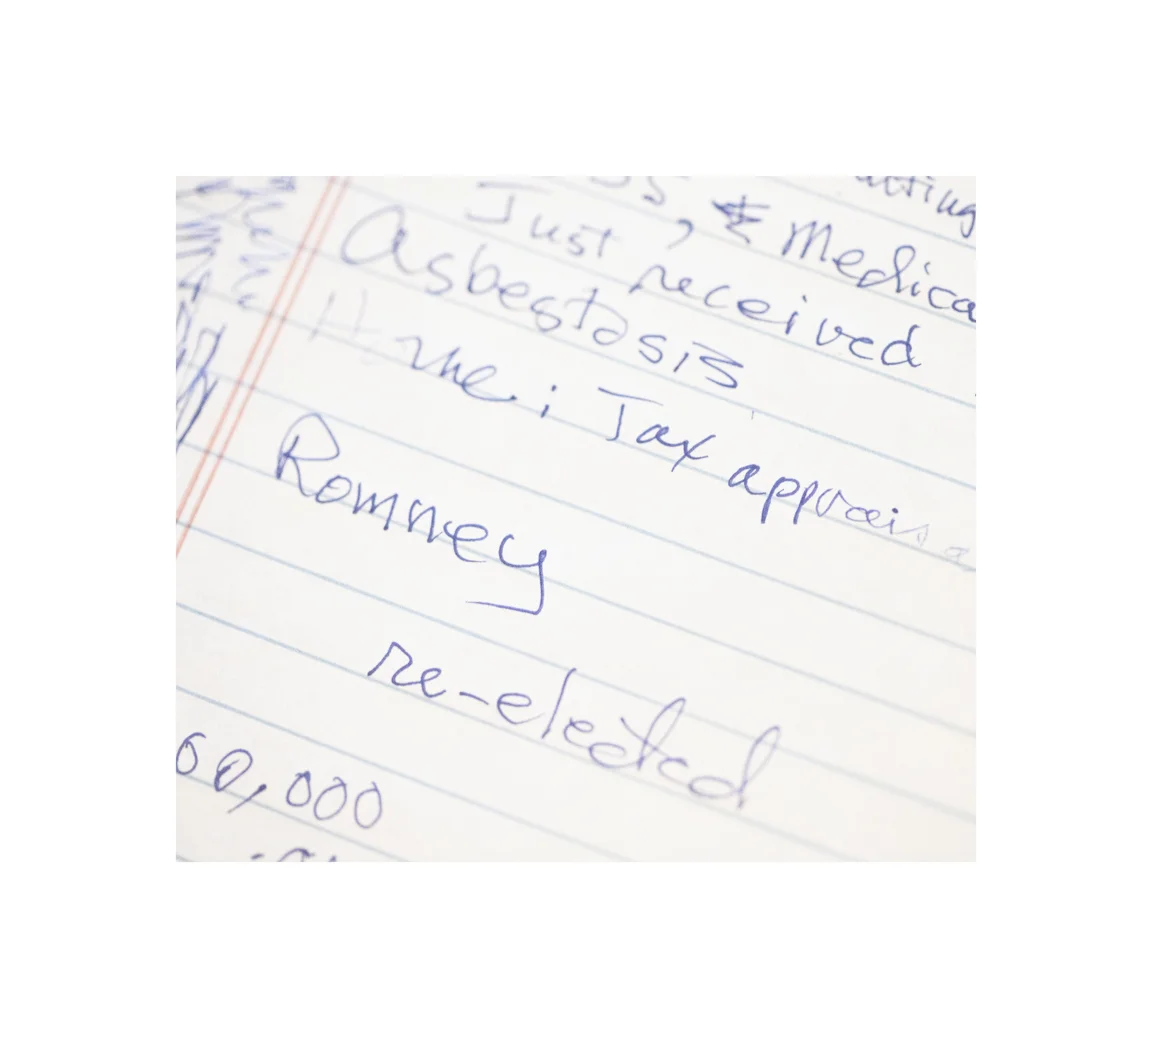 SS, & Medica
Just received
Asbestosis
Home: Tax apprais
Romney
re-elected
60,000